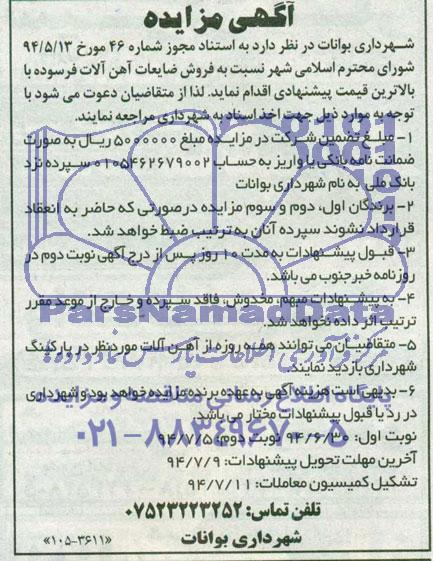 آگهی مزایده
شهرداری بوانات در نظر دارد به استناد مجوز شماره ۴۶ مورخ ۹۴/۵/۱۳
شورای محترم اسلامی شهر نسبت به فروش ضایعات آهن آلات فرسوده با
بالاترین قیمت پیشنهادی اقدام نماید. لذا از متقاضیان دعوت می شود با
توجه به موارد ذیل جهت اخذ اسناد به شهرداری مراجعه نمایند.
۱- مبلغ تضمین شرکت در مزایده مبلغ ۵۰۰۰۰۰۰ ریال به صورت
ضمانت نامه بانکی یا واریز به حساب ۰۱۰۵۴۶۲۶۷۹۰۰۲ سپرده نزد
بانک ملی به نام شهرداری بوانات
۲- برندگان اول، دوم و سوم مزایده در صورتی که حاضر به انعقاد
قرارداد نشوند سپرده آنان به ترتیب ضبط خواهد شد.
۳- قبول پیشنهادات به مدت ۱۰ روز پس از درج آگهی نوبت دوم در
روزنامه خبرجنوب می باشد.
۴- به پیشنهادات مبهم، مخدوش، فاقد سپرده و خارج از موعد مقرر
ترتیب اثر داده نخواهد شد.
۵- متقاضیان می توانند همه روزه از آهن آلات مورد نظر در پارکینگ
شهرداری بازدید نمایند.
۶- بدیهی است هزینه آگهی به عهده برنده مزایده خواهد بود و شهرداری
در رد یا قبول پیشنهادات مختار می باشد.
نوبت اول: ۹۴/۶/۳۰ نوبت دوم: ۹۴/۷/۵
آخرین مهلت تحویل پیشنهادات: ۹۴/۷/۹
تشکیل کمیسیون معاملات: ۹۴/۷/۱۱
تلفن تماس: ۰۷۵۲۳۲۲۳۲۵۲
شهرداری بوانات
«۱۰۵-۳۶۱۱»
ParsNamadData
۰۲۱-۸۸۳۴۹۶۷۰-۵